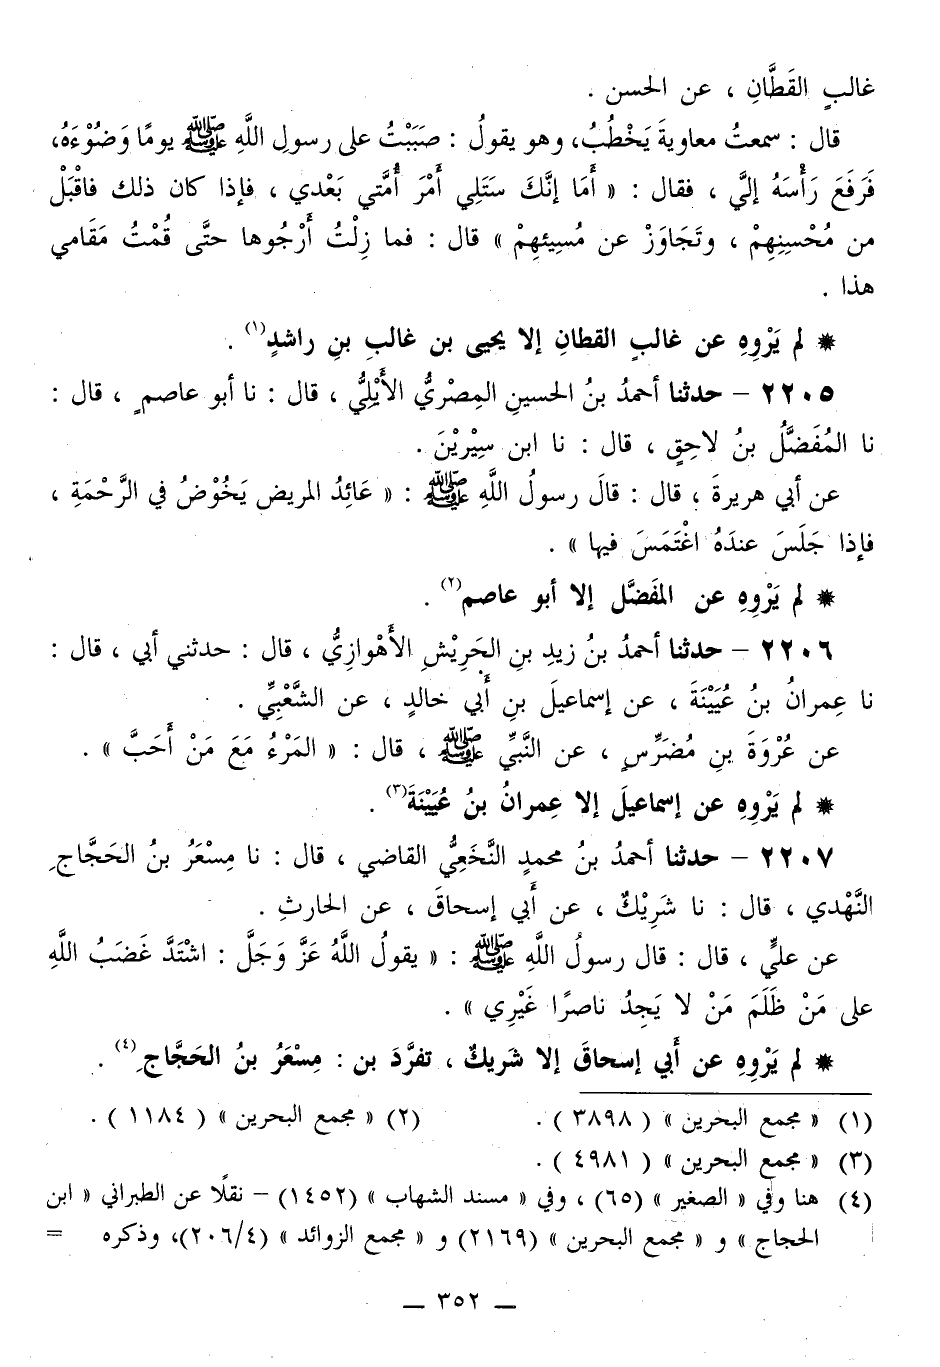 غالبٍ القَطَّانِ ، عن الحسن .
قال : سمعتُ معاويةَ يَخْطُبُ، وهو يقولُ : صَبَبْتُ على رسولِ اللَّهِ ﷺ يومًا وَضُوْءَهُ،
فَرَفَعَ رَأْسَهُ إليَّ ، فقال : « أَمَا إنَّكَ سَتَلِي أَمْرَ أُمَّتي بَعْدي ، فإذا كان ذلك فاقْبَلْ
من مُحْسِنِهِمْ ، وتَجَاوَزْ عن مُسِيئهِمْ » قال : فما زِلْتُ أَرْجُوها حتَّى قُمْتُ مَقَامي
هذا .
* لم يَرْوِهِ عن غالبٍ القطانِ إلا يحيى بن غالبِ بنِ راشدٍ(١) .
٢٢٠٥ – حدثنا أحمدُ بنُ الحسينِ المِصْرِيُّ الأَيْلِيُّ ، قال : نا أبو عاصمٍ ، قال :
نا المُفَضَّلُ بنُ لاحِقٍ ، قال : نا ابن سِيْرِيْنَ .
عن أبي هريرةَ ، قال : قالَ رسولُ اللَّهِ ﷺ : « عَائِدُ المريض يَخُوْضُ في الرَّحْمَةِ ،
فإذا جَلَسَ عندَهُ اغْتَمَسَ فيها » .
* لم يَرْوِهِ عن المفَضَّل إلا أبو عاصم(٢) .
٢٢٠٦ – حدثنا أحمدُ بنُ زيدِ بنِ الحَرِيْشِ الأَهْوازِيُّ ، قال : حدثني أبي ، قال :
نا عِمرانُ بنُ عُيَيْنَةَ ، عن إسماعيلَ بنِ أبي خالدٍ ، عن الشَّعْبِيِّ .
عن عُرْوَةَ بنِ مُضَرِّسٍ ، عن النَّبيِّ ﷺ ، قال : « المَرْءُ مَعَ مَنْ أَحَبَّ » .
* لم يَرْوِهِ عن إسماعيلَ إلا عِمرانُ بنُ عُيَيْنَةَ(٣) .
٢٢٠٧ – حدثنا أحمدُ بنُ محمدٍ النَّخَعِيُّ القاضي ، قال : نا مِسْعَرُ بنُ الحَجَّاجِ
النَّهْدي ، قال : نا شَرِيْكٌ ، عن أَبي إسحاقَ ، عن الحارثِ .
عن عليٍّ ، قال : قال رسولُ اللَّهِ ﷺ : « يقولُ اللَّهُ عَزَّ وَجَلَّ : اشْتَدَّ غَضَبُ اللَّهِ
على مَنْ ظَلَمَ مَنْ لا يَجِدُ ناصرًا غَيْرِي » .
* لم يَرْوِهِ عن أَبي إسحاقَ إلا شَريكٌ ، تفرَّدَ بن : مِسْعَرُ بنُ الحَجَّاجِ(٤) .
(١) « مجمع البحرين » ( ٣٨٩٨ ) . (٢) « مجمع البحرين » ( ١١٨٤ ) .
(٣) « مجمع البحرين » ( ٤٩٨١ ) .
(٤) هنا وفي « الصغير » (٦٥) ، وفي « مسند الشهاب » (١٤٥٢) – نقلًا عن الطبراني « ابن
الحجاج » و « مجمع البحرين » (٢١٦٩) و « مجمع الزوائد » (٢٠٦/٤)، وذكره =
— ٣٥٢ —